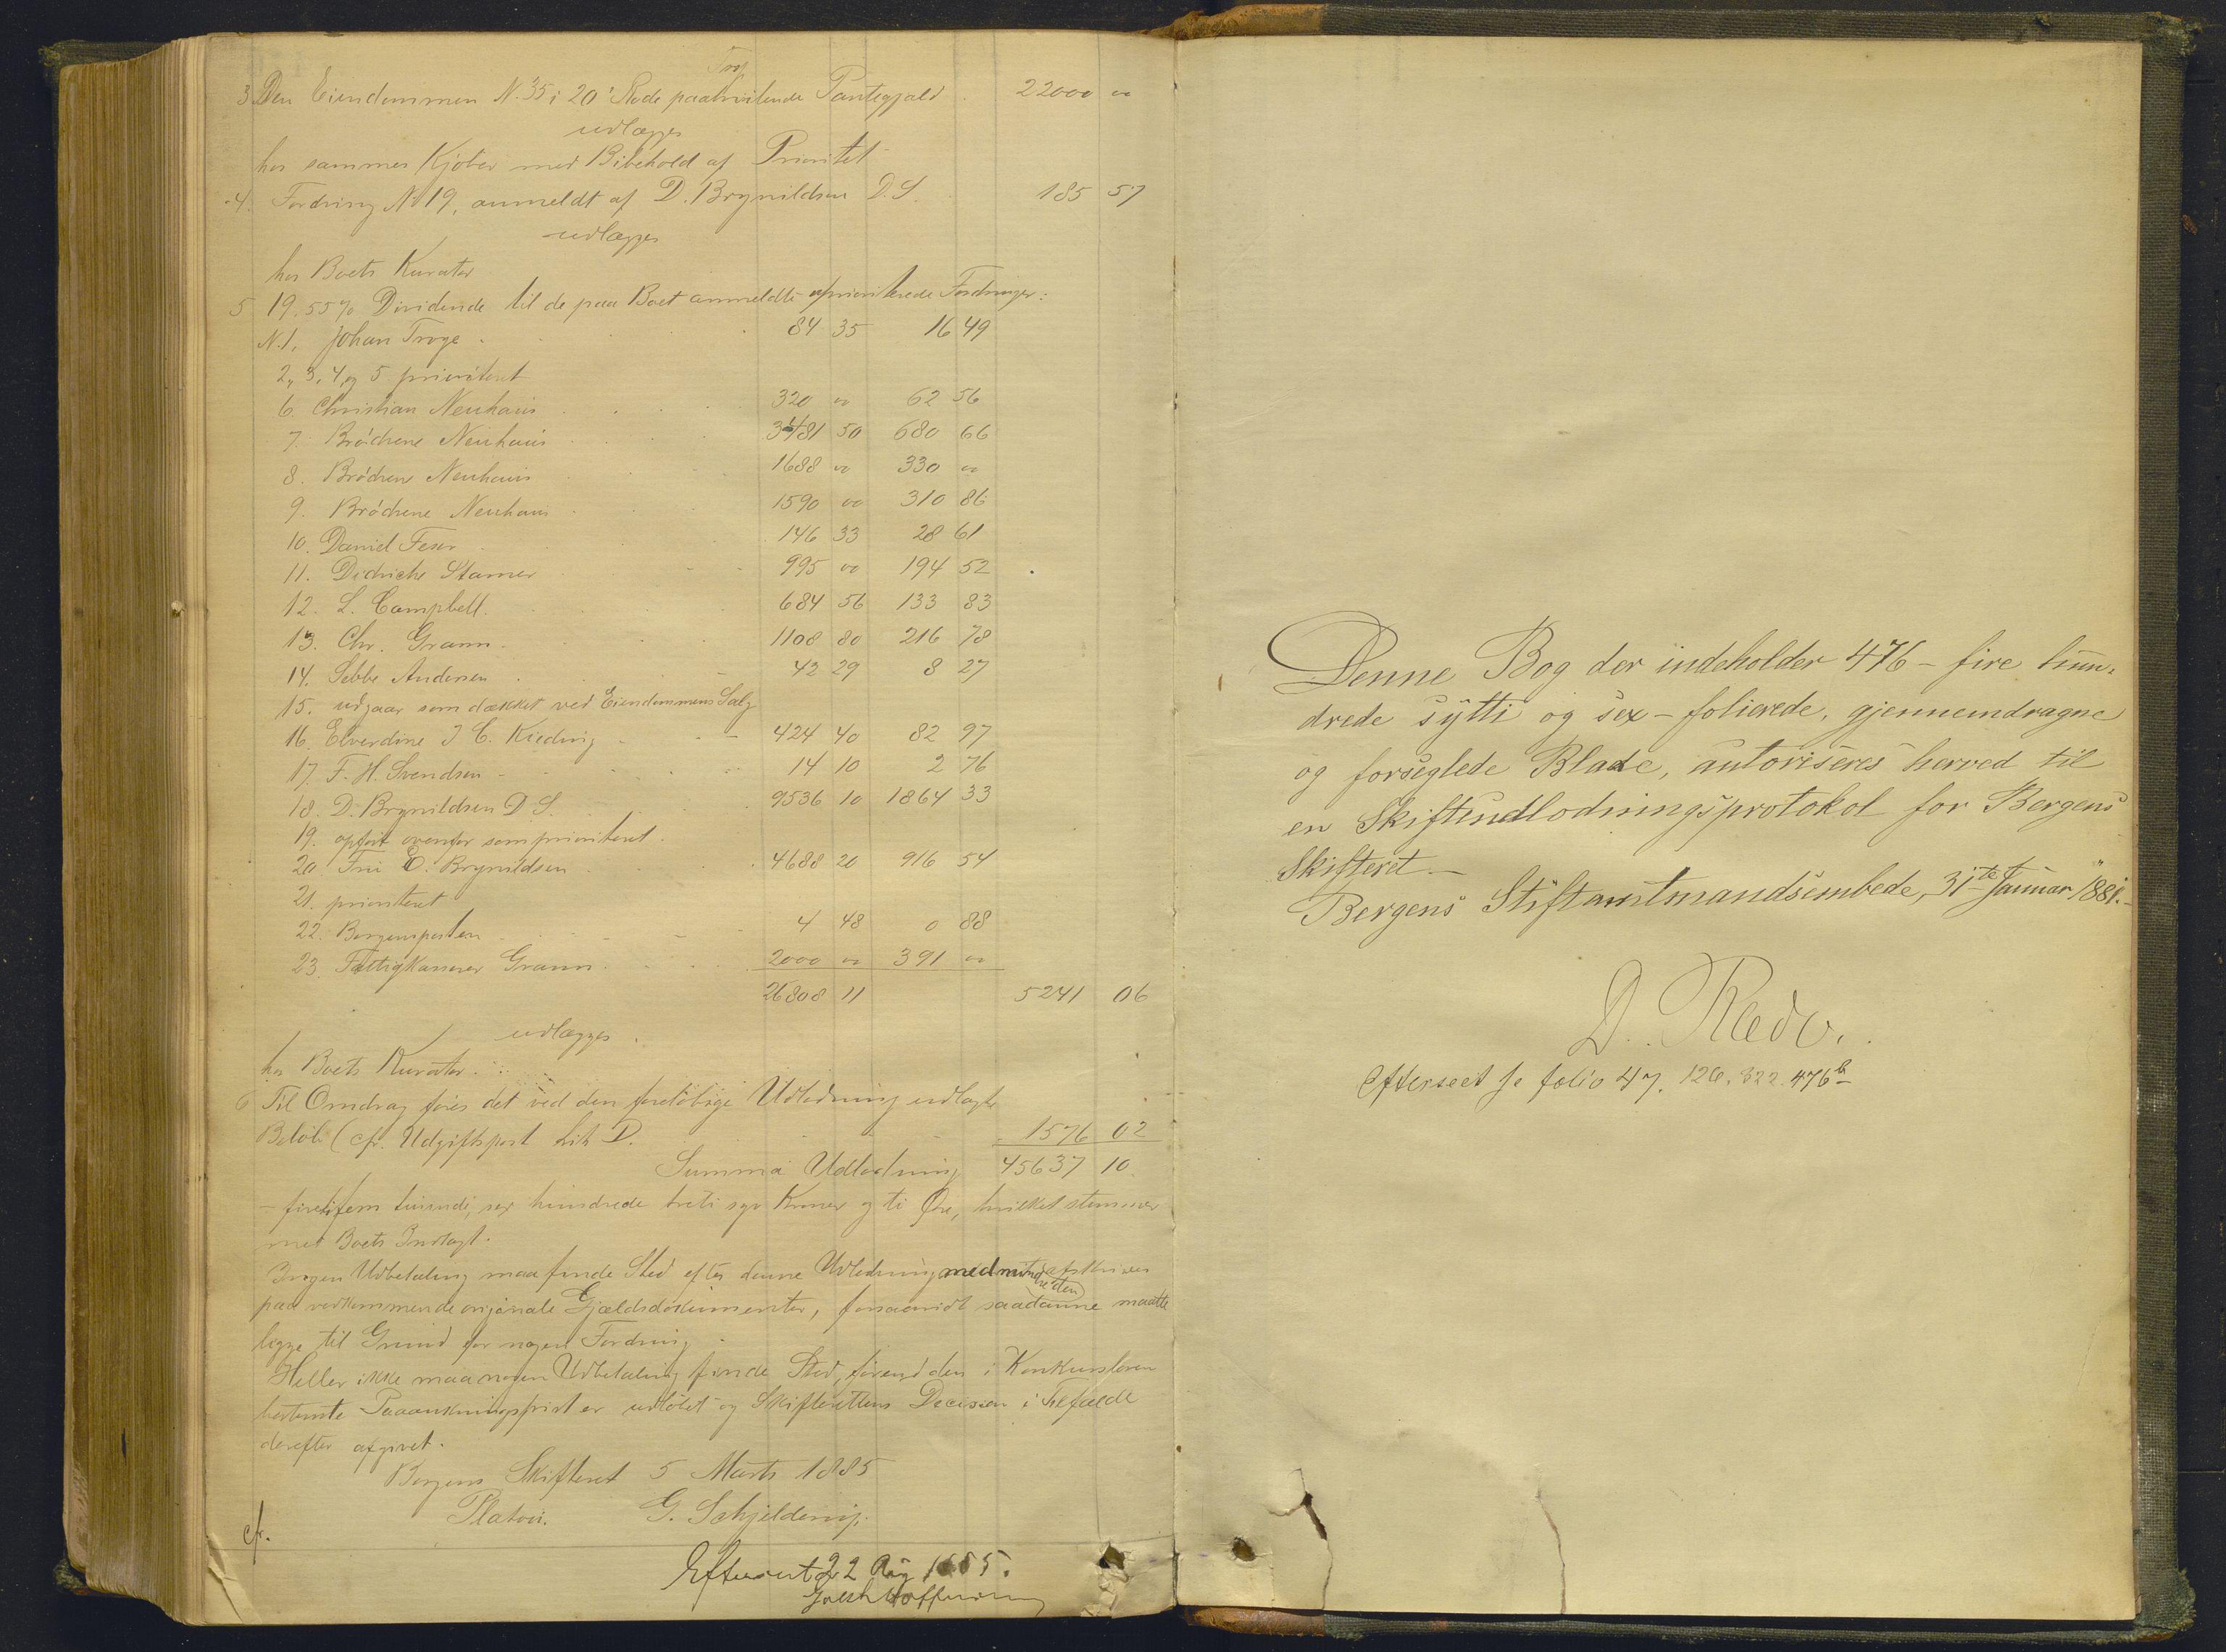 3 Den Eiendommen N. 35 i 20' Rode paahvilende Pantegjæld . 22000 00
udlægges
hos sammes Kjøber med Bibehold af Prioritet
4. Fordring N 19, anmeldt af D. Brynildsen D.S. 185 57
udlægges
hos Boets Kurator
5 19.55% Dividende til de paa Boet anmeldte uprioriterede Fordringer:
N. 1. Johan Troye 84 35 16 49
2, 3, 4 og 5 prioriteret
6. Christian Neuhaus 320 00 62 56
7. Brødrene Neuhaus 3481 50 680 66
8. Brødrene Neuhaus 1688 00 330 00
9. Brødrene Neuhaus 1590 00 310 86
10. Daniel Feser 146 33 28 61
11. Didriche Stamer 995 00 194 52
12. L. Campbell. 684 56 133 83
13. Chr. Grann. 1108 80 216 78
14. Sebbe Andersen 42 29 8 27
15. udgaar som dækket ved Eiendommens Salg
16. Elverdine J C. Kieding 424 40 82 97
17. F. H. Svendsen 14 10 2 76
18. D. Brynildsen D S. 9536 10 1864 33
19. opført ovenfor som prioriteret.
20 Fru E. Brynildsen 4688 20 916 54
21. prioriteret
22. Bergensposten 4 48 0 88
23. Fattigkasserer Grann. 2000 00 391 00
26808 11 5241 06
udlægges.
hos Boets Kurator.
6 Til Omdrag føres det ved den foreløbige Udlodning udlagte
Beløb (cfr. Udgiftspost Lit D. 1576 02
Summa Udlodning 45637 10.
- firetifem tusinde, sex hundrede treti syv Kroner og ti Øre, hvilket stemmer
med Boets Indtægt.
Ingen Udbetaling maa finde Sted efter denne Udlodning medmindre den afskrives
paa vedkommende originale Gjældsdokumenter, forsaavidt saadanne maatte
ligge til Grund for nogen Fordring.
Heller ikke maa nogen Udbetaling finde Sted, førend den i Konkursloven
bestemte Paaankningsfrist er udløbet og Skifterettens Decision i Tilfælde
derefter afgivet.
Bergens Skifteret 5 Marts 1885
Platou. G. Schjelderup.
cfr.
Efterseet 22 Aug 1885.
Denne Bog der indeholder 476 - fire hun-
drede sytti og sex - folierede, gjennemdragne
og forseglede Blade, autoriseres herved til
en Skifteudlodningsprotokol for Bergens
Skifteret. -
Bergens Stiftamtmandsembede, 31te Januar 1881. -
Efterseet se folio 47. 126. 322. 476b